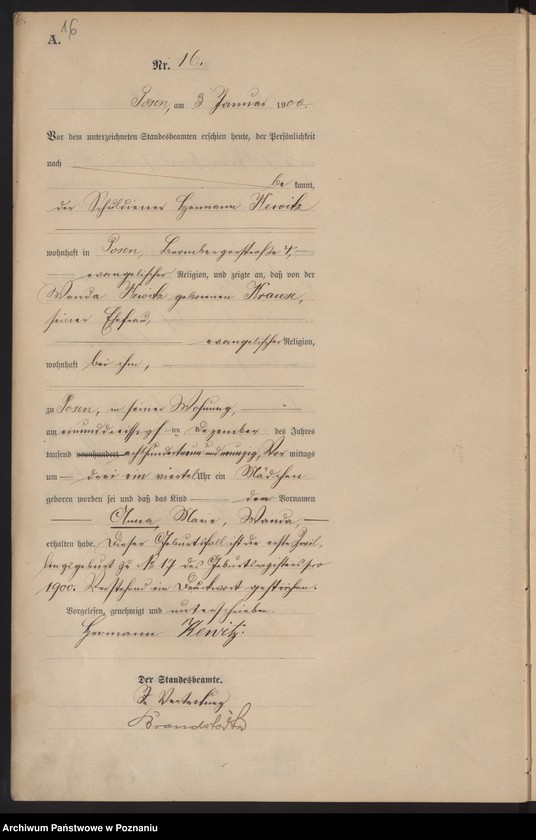 6.
A. 16
Nr. 16.
Posen, am 3 Januar 1900.
Vor dem unterzeichneten Standesbeamten erschien heute, der Persönlichkeit
nach
be kannt,
der Schuldiener Hermann Kewitz
wohnhaft in Posen, Brombergerstraße 4,
evangelischer Religion, und zeigte an, daß von der
Wanda Kewitz geborenen Krause,
seiner Ehefrau,
evangelischer Religion,
wohnhaft bei ihm,
zu Posen, in seiner Wohnung,
am einunddreißigsten Dezember des Jahres
tausend neunhundert achthundertneunundneunzig, Vor mittags
um drei ein viertel Uhr ein Mädchen
geboren worden sei und daß das Kind den Vornamen
Anna Marie, Wanda,
erhalten habe. Dieser Geburtsfall ist die erste Zwil-
lingsgeburt zu No 17 des Geburtsregisters pro
1900. Vorstehend ein Druckwort gestrichen.
Vorgelesen, genehmigt und unterschrieben.
Hermann Kewitz.
Der Standesbeamte.
In Vertretung
Archiwum Państwowe w Poznaniu